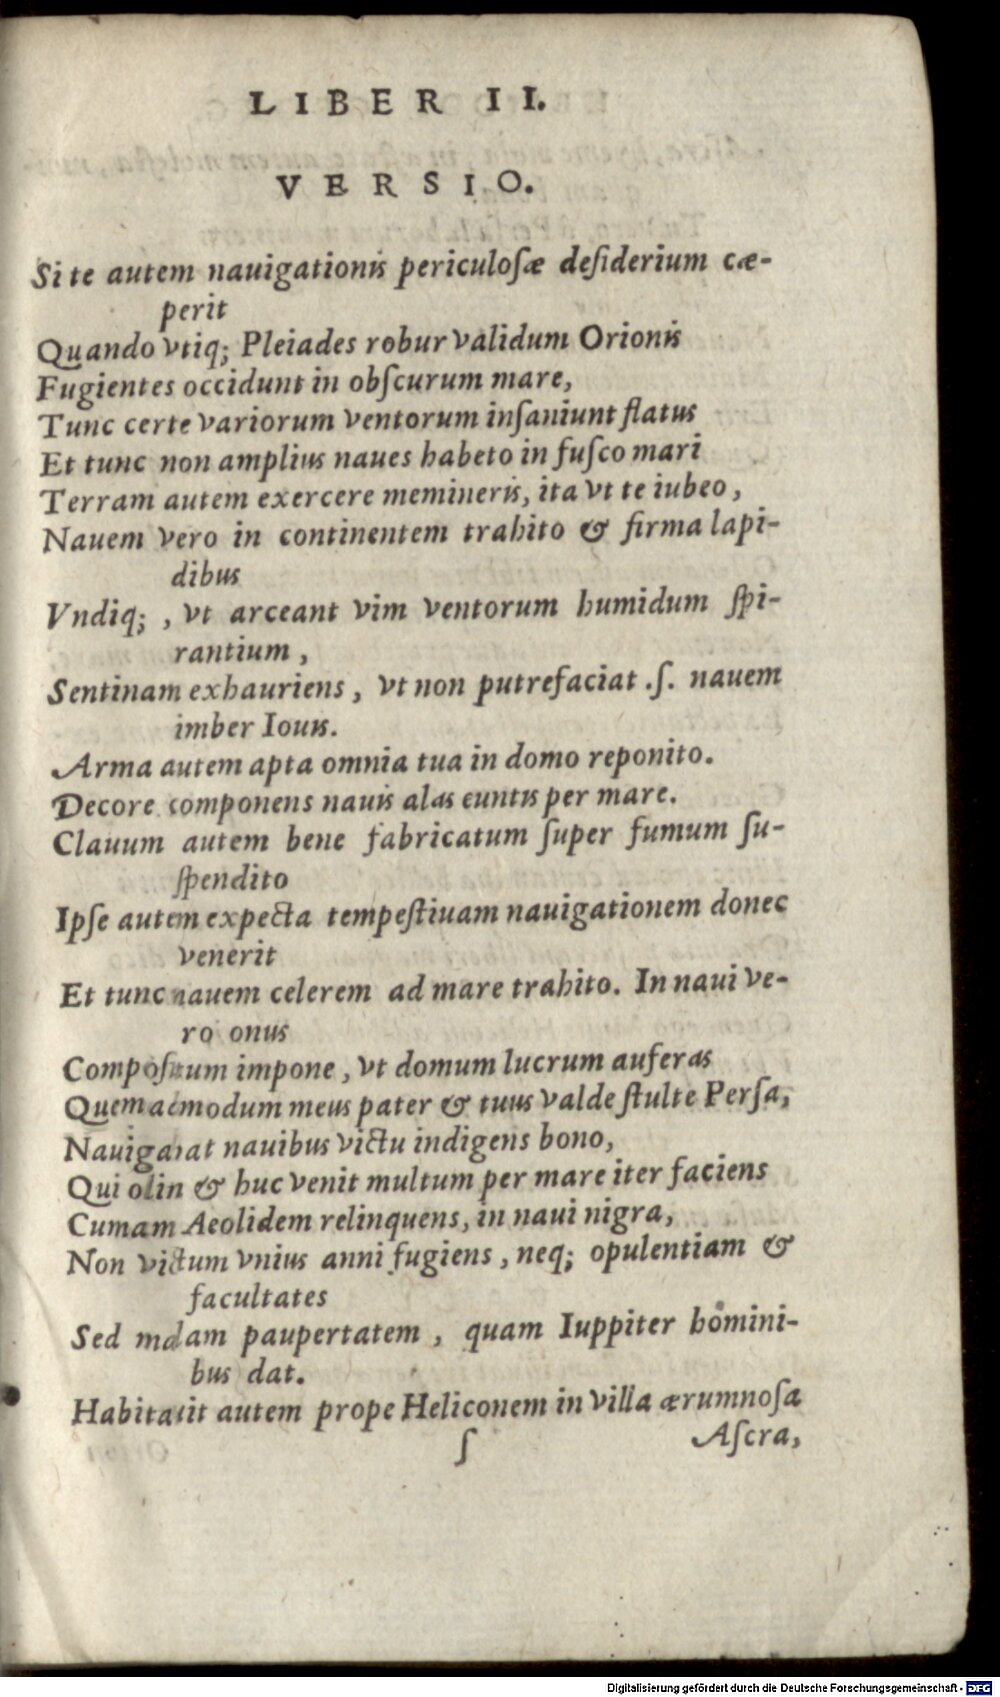 LIBER II.
VERSIO.
Si te autem nauigationis periculoſæ deſiderium cæ-
perit
Quando vtiq; Pleiades robur validum Orionis
Fugientes occidunt in obſcurum mare,
Tunc certe variorum ventorum inſaniunt flatus
Et tunc non amplius naues habeto in fuſco mari
Terram autem exercere memineris, ita vt te iubeo,
Nauem vero in continentem trahito & firma lapi-
dibus
Vndiq; , vt arceant vim ventorum humidum ſpi-
rantium ,
Sentinam exhauriens , vt non putrefaciat .ſ. nauem
imber Iouis.
Arma autem apta omnia tua in domo reponito.
Decore componens nauis alas euntis per mare.
Clauum autem bene fabricatum ſuper fumum ſu-
ſpendito
Ipſe autem expecta tempeſtiuam nauigationem donec
venerit
Et tunc nauem celerem ad mare trahito. In naui ve-
ro onus
Compoſitum impone , vt domum lucrum auferas
Quemadmodum meus pater & tuus valde ſtulte Perſa,
Nauigabat nauibus victu indigens bono,
Qui olim & huc venit multum per mare iter faciens
Cumam Aeolidem relinquens, in naui nigra,
Non victum vnius anni fugiens , neq; opulentiam &
facultates
Sed malam paupertatem , quam Iuppiter homini-
bus dat.
Habitauit autem prope Heliconem in villa ærumnoſa
ſ Aſcra,
Digitalisierung gefördert durch die Deutsche Forschungsgemeinschaft - DFG